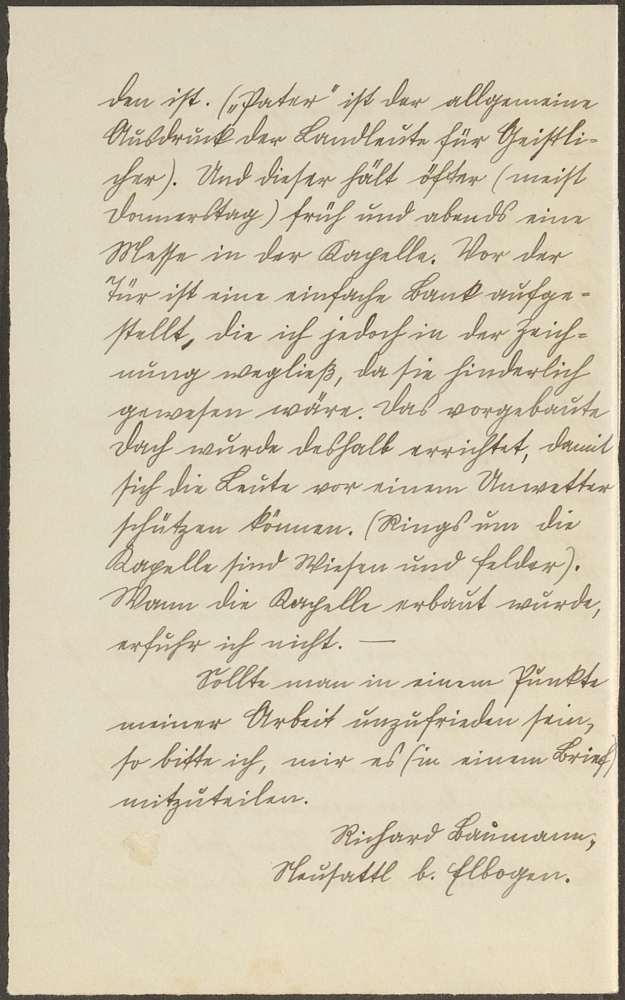 den ist. („Pater“ ist der allgemeine
Ausdruck der Landleute für Geistli-
cher). Und dieser hält öfter (meist
Donnerstag) früh und abends eine
Messe in der Kapelle. Vor der
Tür ist eine einfache Bank aufge-
stellt, die ich jedoch in der Zeich-
nung wegließ, da sie hinderlich
gewesen wäre. Das vorgebaute
Dach wurde deshalb errichtet, damit
sich die Leute vor einem Unwetter
schützen können. (Rings um die
Kapelle sind Wiesen und Felder).
Wann die Kapelle erbaut wurde,
erfuhr ich nicht. —
Sollte man in einem Punkte
meiner Arbeit unzufrieden sein,
so bitte ich, mir es (in einem Brief)
mitzuteilen.
Richard Baumann,
Neusattl b. Elbogen.